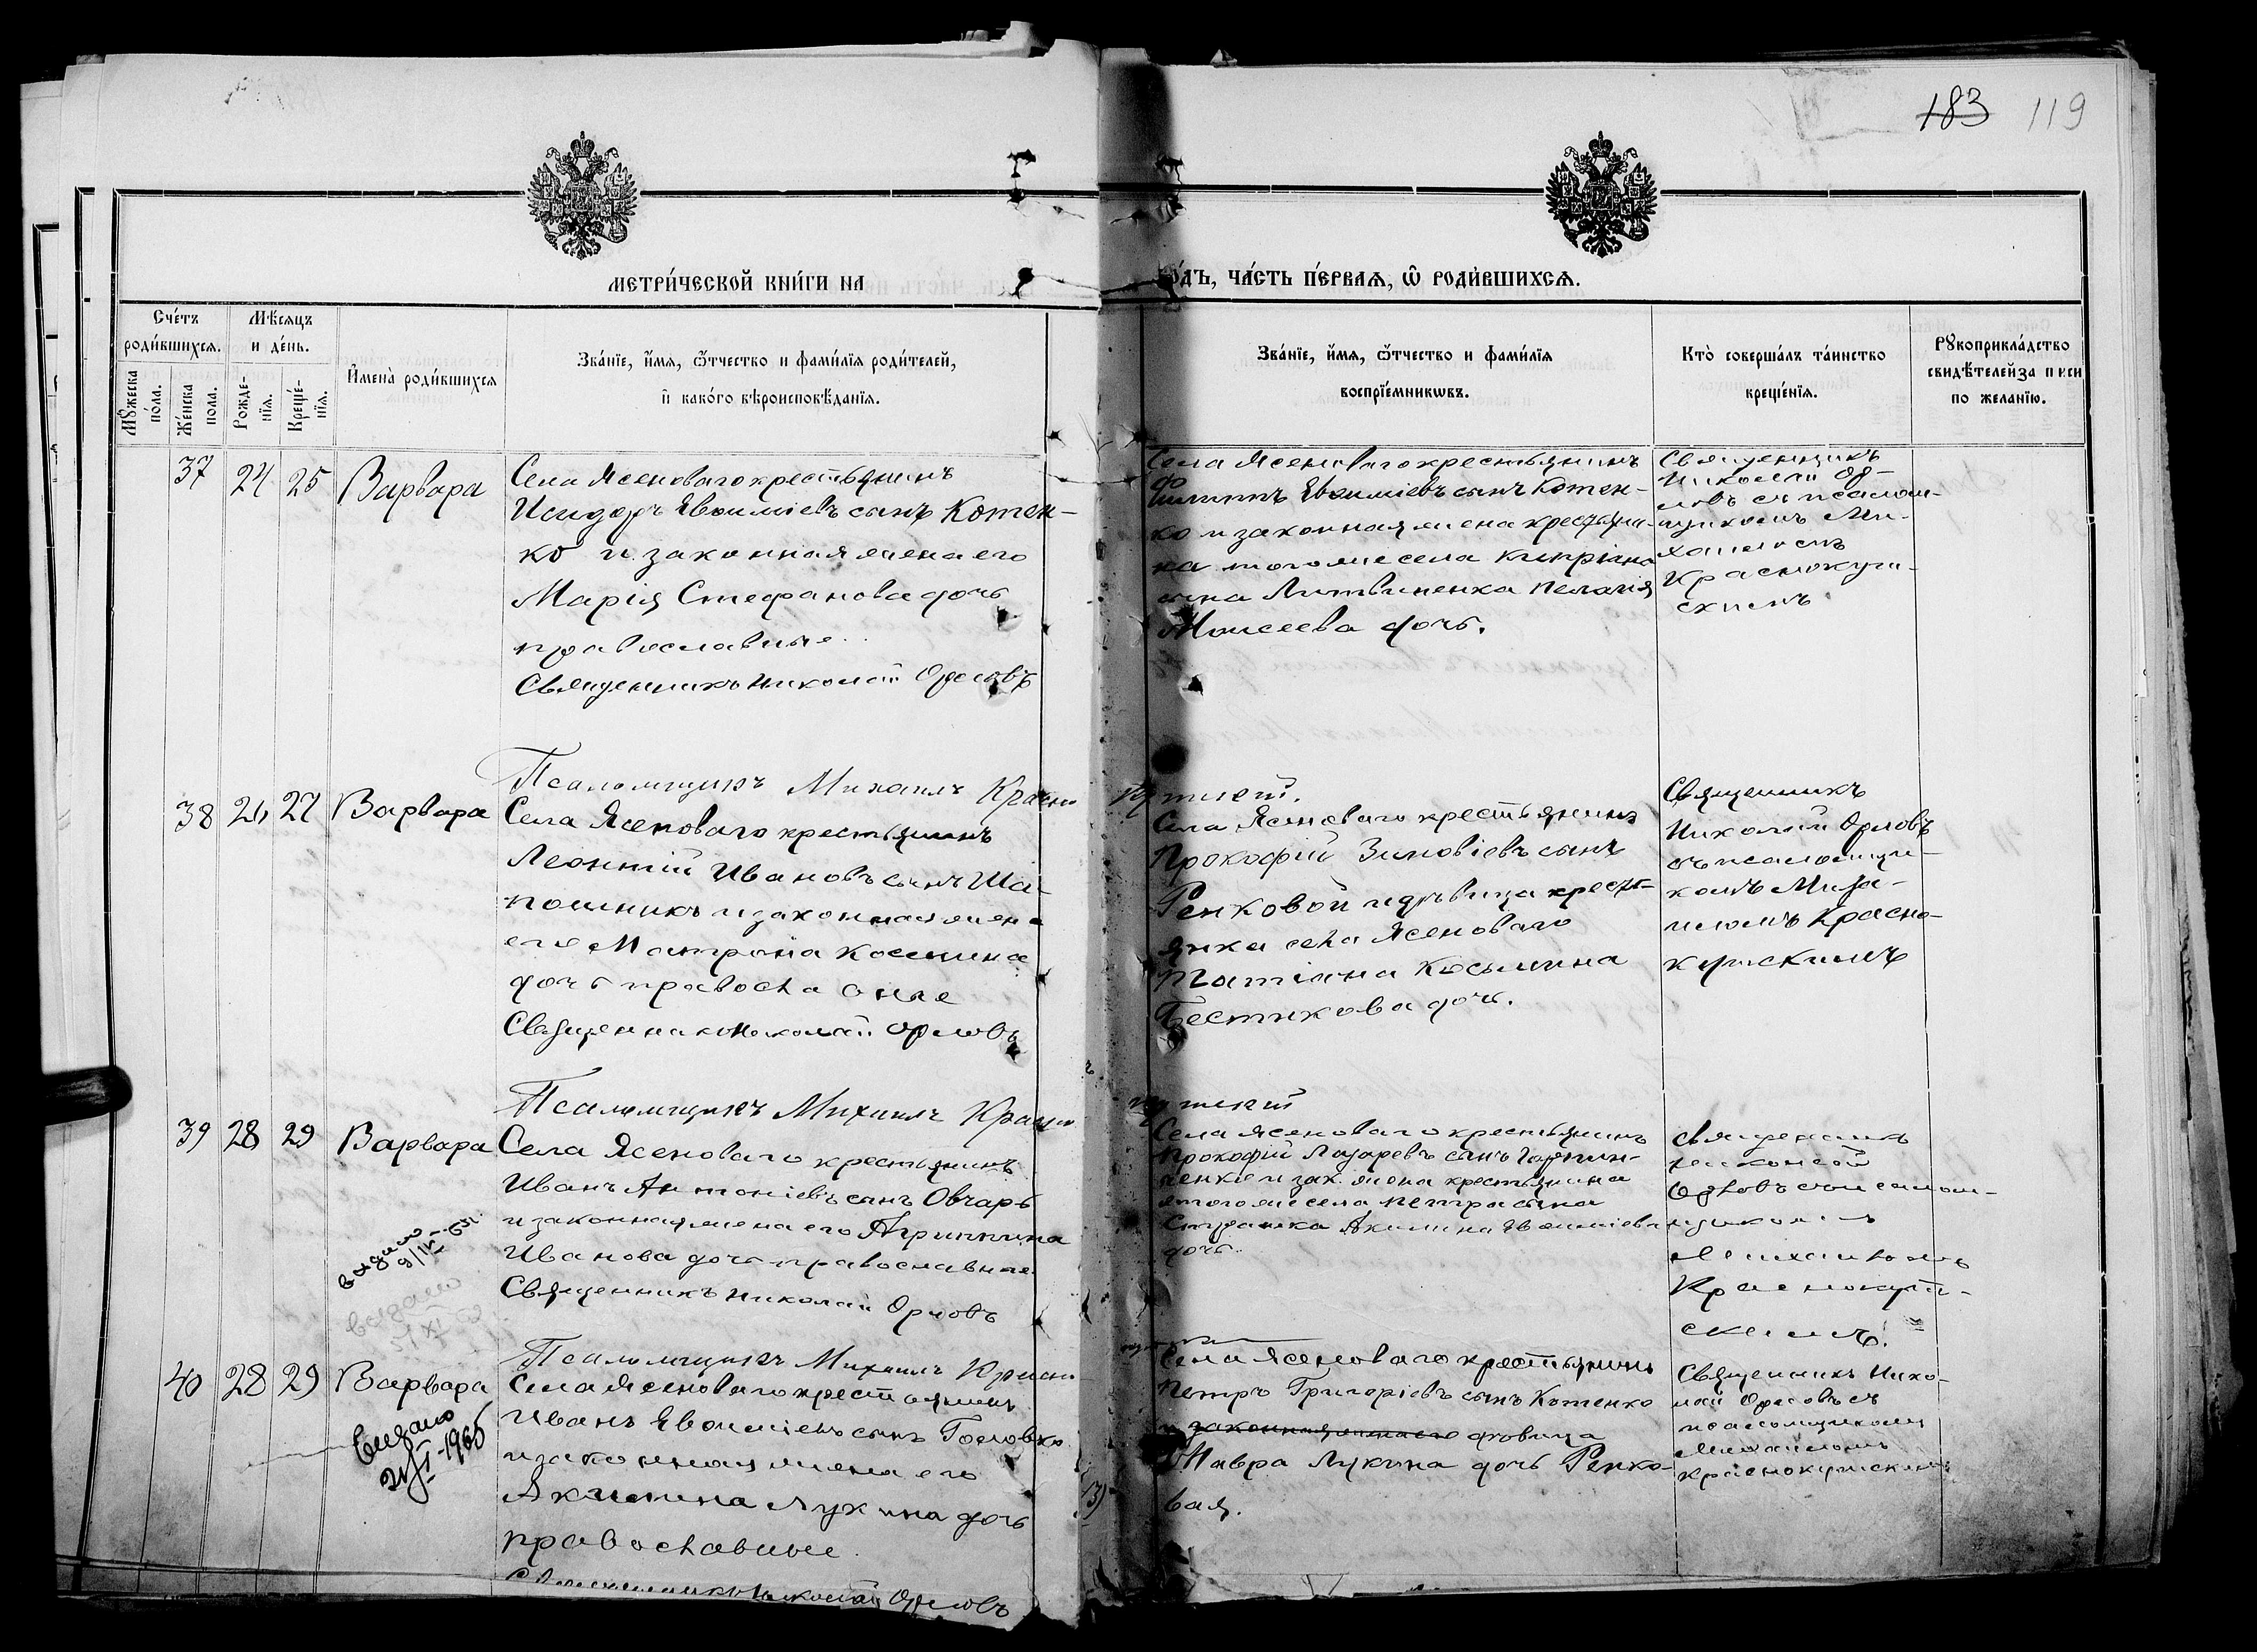 183 119
МЕТРИ́ЧЕСКОЙ КНИ́ГИ НА
ГО́ДЪ, ЧА́СТЬ ПЕ́РВАЯ, Ѡ҆ РОДИ́ВШИХСЯ.
Сче́тъ роди́вшихся.
Мꙋ́жеска по́ла.
Же́нска пола.
Мѣ́сяцъ и де́нь.
Рожде-нїя.
Креще́-нїя.
И҆мена̀ роди́вшихся
Зва́нїе, и҆́мя, ѻ҆́тчество и фами́лїя роди́телей,
и҆ како́го вѣроисповѣ́данїя.
Зва́нїе, и҆́мя, ѻ҆́тчество и фами́лїя
воспрїе́мникѡвъ.
Кто̀ соверша́лъ та́инство
креще́нїя.
Рꙋкоприкла́дство
свидѣ́телей за писи
по жела́нїю.
37 24 25 Варвара
Села Ясеноваго крестьянинъ
Исидоръ Евѳиміевъ сынъ Котен-
ко и законная жена его
Марія Стефанова дочь
православные.
Священникъ Николай Орловъ
Села Ясеноваго крестьянинъ
Филиппъ Евѳиміевъ сынъ Котен-
ко и законная жена крестьяни-
на того же села Кипріана
сына Литвиненка Пелагія
Моисеева дочь.
Священникъ
Николай Ор-
ловъ съ псалом-
щикомъ Ми-
хаиломъ
Краснокут-
скимъ
Псаломщикъ Михаилъ Красно
кутскій.
38 26 27 Варвара
Села Ясеноваго крестьянинъ
Леонтій Ивановъ сынъ Ша-
пошникъ и законная жена
его Матрона Космина
дочь православные
Священникъ Николай Орловъ
Села Ясеноваго крестьянинъ
Прокофій Зиновіевъ сынъ
Ренковой и дѣвица кресть-
янка села Ясеноваго
Татіана Косьмина
Бестикова дочь.
Священникъ
Николай Орловъ
съ псаломщи-
комъ Миха-
иломъ Красно-
кутскимъ
Псаломщикъ Михаилъ Красно
кутскій
39 28 29 Варвара
Села Ясеноваго крестьянинъ
Иванъ Антоніевъ сынъ Овчарь
и законная жена его Агриппина
Иванова дочь православные.
Священникъ Николай Орловъ
Села Ясеноваго крестьянинъ
Прокофій Лазаревъ сынъ
ненко и зак. жена крестьянина
этого же села Петра сына
Акилина Евѳиміева
дочь.
Священникъ
Николай
Орловъ съ псалом-
щикомъ
Михаиломъ
Краснокут-
скимъ.
видано
видано
Псаломщикъ Михаилъ Красно
40 28 29 Варвара
Села Ясеноваго крестьянинъ
Иванъ Евѳиміевъ сынъ Головко
и законная жена его
Акилина Лукина дочь
православные.
Священникъ Николай Орловъ
Села Ясеноваго крестьянинъ
Петръ Григоріевъ сынъ Котенко
и законная жена его дѣвица
Мавра Лукина дочь Ренко-
вая.
Священникъ Нико-
лай Орловъ съ
псаломщикомъ
Михаиломъ
Краснокутскимъ
Видано
1965